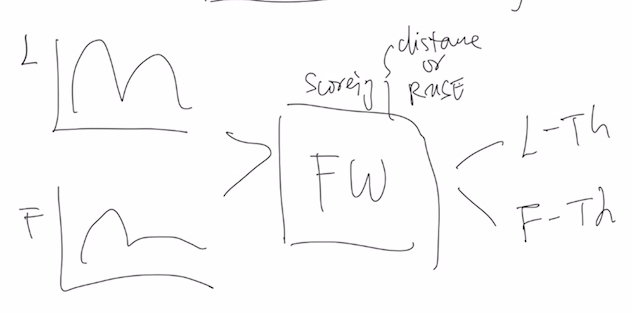 L
F
scoreing
distane
or
RMSE
FW
L-Th
F-Th